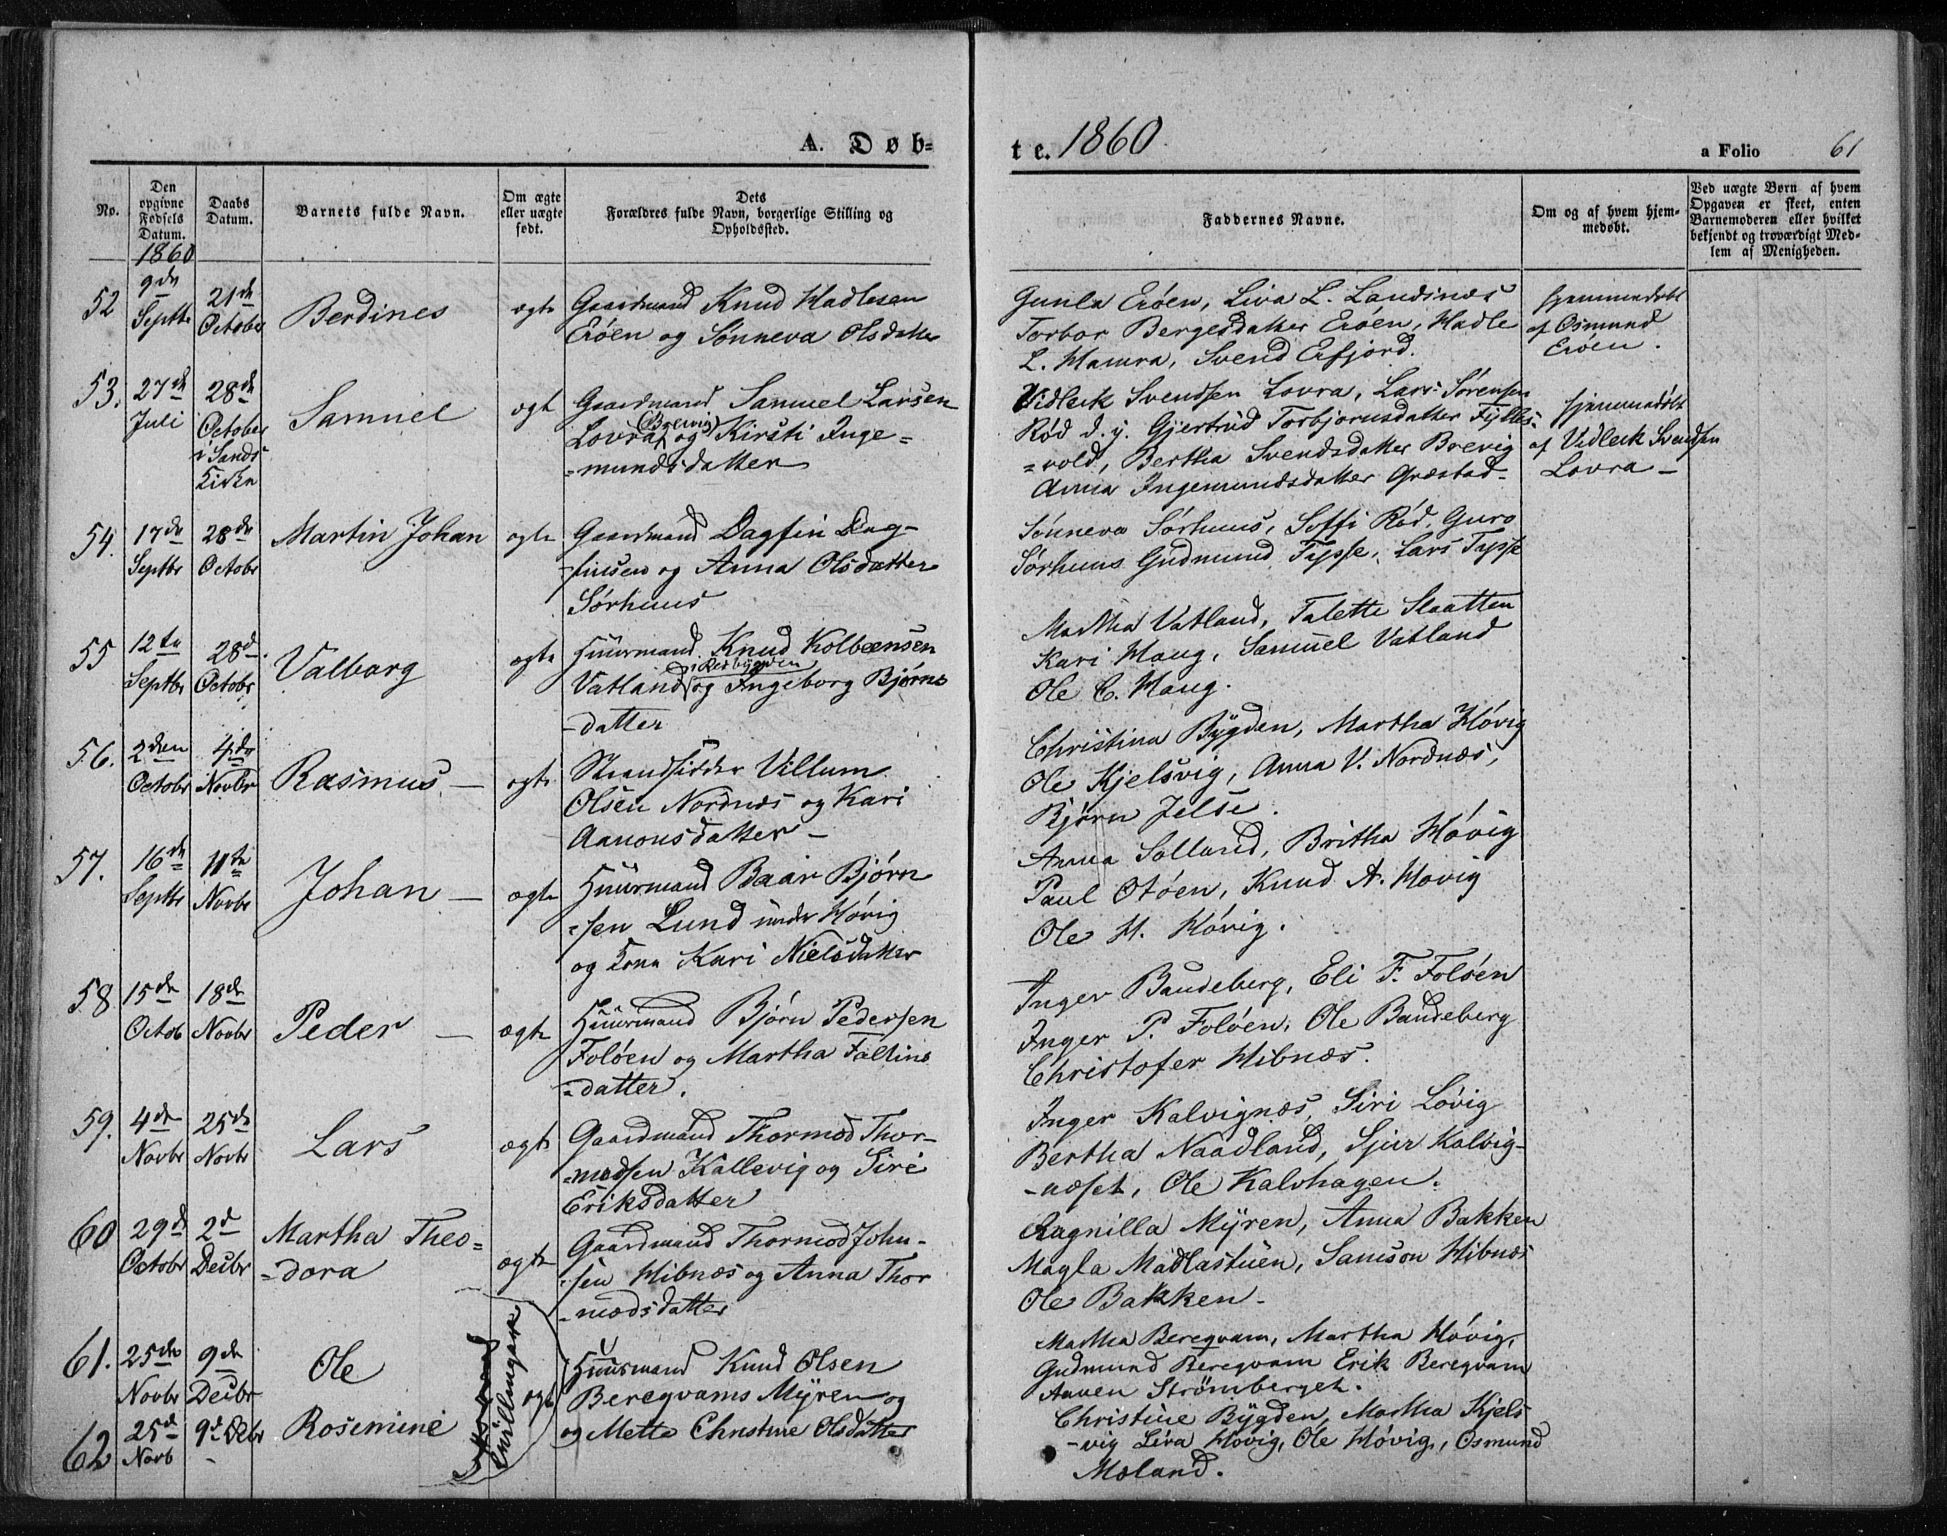 A. Døb-
te. 1860.
a Folio 61
No.
Den opgivne Fødsels Datum.
Daabs Datum.
Barnets fulde Navn.
Om ægte eller uægte født.
Dets Forældres fulde Navn, borgerlige Stilling og Opholdssted.
Faddernes Navne.
Om og af hvem hjem-
medøbt.
Ved uægte Børn af hvem
Opgaven er skeet, enten
Barnemoderen eller hvilket
bekjendt og troværdigt Med-
lem af Menigheden.
1860
52 9de Septbr 21de October Berdines ægte
Gaardmand Knud Hadlesen
Erøen og Sønneva Olsdatter
Gunla Erøen, Liva L. Landsnæs
Torbor Bergesdatter Erøen, Hadle
L. Hamra, Svend Erfjord.
hjemmedøbt
af Osmund
Erøen.
53. 27de Juli 28de October i Sands Kirke Samuel ægte
Gaardmand Samuel Larsen
Lovra (Brevig) og Kirsti Inge=
=mundsdatter
Vidleck Svendsen Lovra, Lars Sørensen
Rød d. y. Gjertrud Torbjørnsdatter Fylles-
=vold, Bertha Svendsdatter Brevig
Anna Ingemundsdatter Græstad-
hjemmedøbt
af Vidleck Svendsen
Lovra-
54. 17de Septbr 28de Octobr Martin Johan ægte
Gaardmand Dagfin Dag-
-finsen og Anna Olsdatter
Sørhuus
Sønneva Sørhuus, Soffi Rød, Guro
Sørhuus Gudmund Tysse, Lars Tysse
55 12te Septbr 28d. Octobr Valborg ægte
Huurmand Knud Kolbeensen
Vatland og Ingeborg Bjørns
-datter
Martha Vatland, Talette Slaatten
Kari Haug, Samuel Vatland
Ole C. Haug.
56. 2den Octobr 4de Novbr Rasmus- ægte
Strandsidder Villum
Olsen Nordnæs og Kari
Aanonsdatter-
Christina Bygden, Martha Høvig
Ole Kjelsvig, Anna V. Nordnæs,
Bjørn Jelse.
57. 16de Septbr 11te Novbr Johan- ægte
Huurmand Baar Bjørn
-sen Lund under Høvig
og Kona Kari Nielsdatter
Anna Solland, Britha Høvig
Paul Otøen, Knud A. Høvig
Ole H. Høvig.
58 15de Octob 18de Novbr Peder- ægte
Huurmand Bjørn Pedersen
Foløen og Martha Faltins
-datter.
Inger Bandeberg, Eli F. Foløen
Inger P. Foløen, Ole Bandeberg
Christofer Hibnæs.
59. 4de Novbr 25de Novbr Lars ægte
Gaardmand Thormod Thor-
-modsen Kallevig og Siri
Eriksdatter
Inger Kalvignæs, Siri Løvig
Bertha Naadland, Sjur Kalvig-
-næset, Ole Kalvhagen.
60 29d Octobr 2d Decbr Martha Theo=
=dora ægte
Gaardmand Thormod John-
-sen Hibnæs og Anna Thor
-modsdatter
Ragnilla Myren, Anna Bakken
Magla Madlastuen, Samson Hibnæs
Ole Bakken-
61. 25de Novbr 9de Decbr Ole ægte
Huusmand Knud Olsen
Beregvams Myren og
og Mette Christine Olsdatter
Martha Beregvam, Martha Høvig,
Gudmund Beregvam Erik Beregvam
Anven Strømberget.
62 25d Novb 9d Debr Rosemine
Tvillingere
Christine Bygden, Martha Kjels
-vig Liva Høvig, Ole Høvig, Osmund
Mæland.